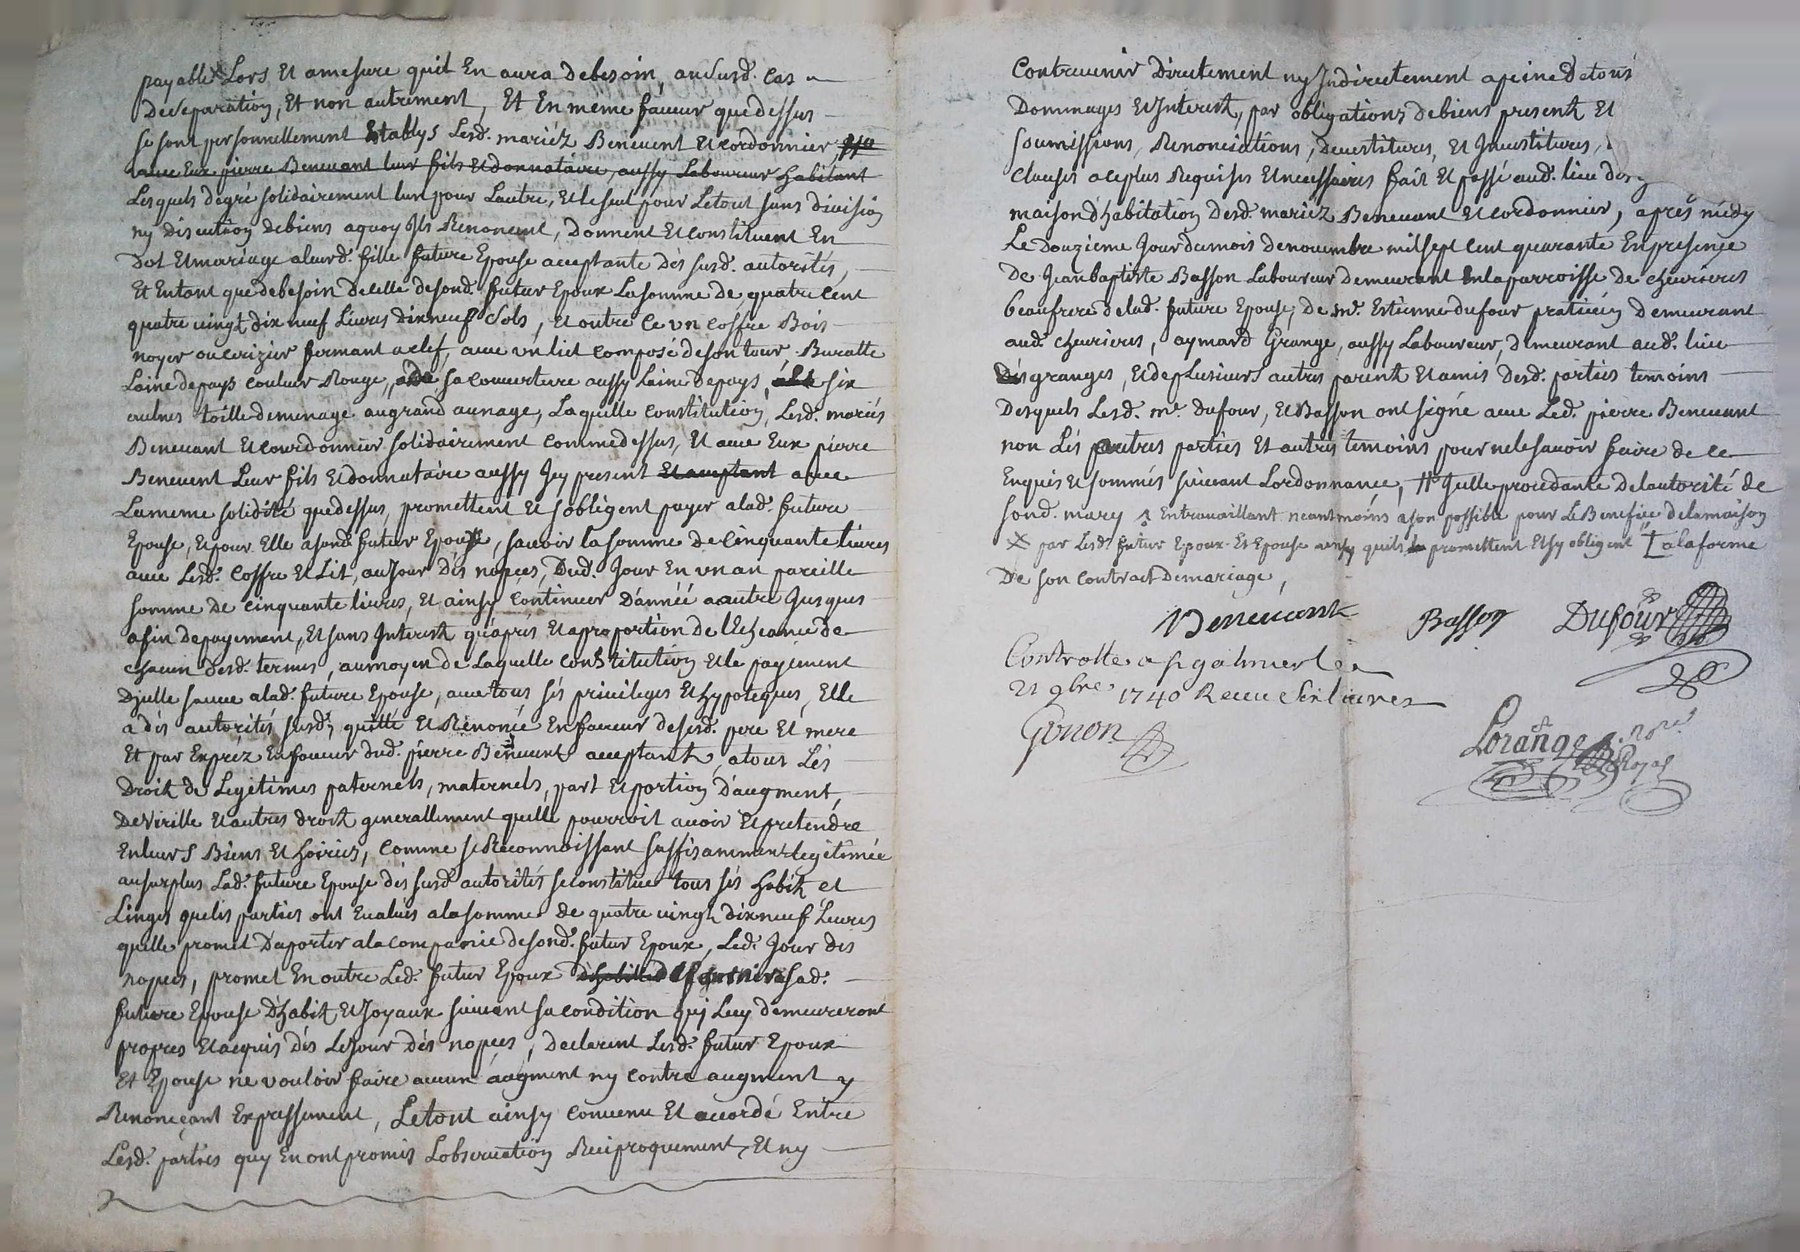 payable × Lors Et amesure quil En aura debesoin, aususd. Cas
Deseparation, Et non autrement, Et En meme faueur quedessus
se sont personnellement Etablys Lesd. mariéz Beneuent Et Cordonnier
auec Eux pierre Beneuant leur fils Et donnataire, aussy Laboureur habitant
Lesquels degré solidairement lun pour Lautre, Et le seul pour Letout sans diuision
ny discution debiens aquoy Ils Renoncent, Donnent Et constituent En
Dot Et mariage aleurd. fille future Epouse acceptante Des susd. autorités,
Et Entant que debesoin decelle desond. futur Epoux La somme de quatre cent
quatre uingt dix neuf Liures dixneuf sols, Et outre Ce vn coffre Bois
noyer ou cerizier fermant aclef, auec vn lict composé deson tour Buratte
Laine depays couleur Rouge, sa couuerture aussy Laine depays, six
aulnes toille demenage augrand aunage, Laquelle constitution, Lesd. mariés
Beneuant Et courdonnier solidairement commedessus, Et auec Eux pierre
Beneuent Leur fils Et donnataire aussy Icy present Et acceptant auec
Lameme solidité quedessus, promettent Et sobligent payer alad. future
Epouse, Et pour Elle asond. futur Epoux, sauoir la somme de cinquante liures
auec Lesd. Coffre Et Lit, aujour dés nopces, Dud. Jour En vn an pareille
somme de cinquante liures, Et ainsy continuer D'année aautre Jusques
afin depayement, Et sans Interest qu'aprés Et aproportion de lEcheance de
chacun desd. termes, aumoyen de Laquelle constitution Et le payement
D'jcelle sauue alad. future Epouse, auec tous sés priuileges Et hypoteques, Elle
a dés autorités susd. quitté Et Renoncé En faueur desesd. pere Et mere
Et par Exprez En faueur dud. pierre Beneuent acceptant, atous Lés
Droit de Legitimes paternels, maternels, part Et portion D'augment,
De Virille Et autres droit generallement quelle pourroit auoir Et pretendre
En leurs Biens Et hoiries, comme se Reconnoissant suffisamment legitimée
ausurplus Lad. future Epouse dés susd. autorités seconstitue tous sés habit et
Linges quelés parties ont Eualués alasomme de quatre uingt dixneuf Liures
quelle promet D'aporter alacompanie desond. futur Epoux, Led. Jour dés
nopces, promet En outre Led. futur Epoux sad.
future Epouse D'habit Et Joyaux suiuant sa condition quj Luy demeureront
propres Et acquis dés Lejour dés nopces, Declarent Lesd. futur Epoux
Et Epouse ne vouloir faire aucun augment ny contre augment y
Renonçant Expressement, Le tout ainsy conuenu Et accordé Entre
Lesd. parties quy En ont promis Lobseruation Reciproquement, Et ny
Contreuenir Directement ny Indirectement apeine De tous
Dommages Et Interest, par obligations debiens present Et
soumissions, Renonciations, deuestitures, Et Inuestitures,
Clauses aceplus Requises Et necessaires fait Et passé aud. lieu
maison d'habitation Desd. mariéz Beneuant Et cordonnier, aprés midy
Le douzieme Jour du mois denouembre mil sept cent quarante En presence
De Jean baptiste Basson Laboureur demeurant En la parroisse de cheurieres
beaufrere delad. future Epouse, De mr. Estienne dufour praticien demeurant
aud. cheurieres, aymard Grange, aussy Laboureur, demeurant aud. lieu
Désgranges, Et deplusieurs autres parent Et amis Desd. parties temoins
Desquels Lesd. mr. dufour, Et Basson ont signé auec Led. pierre Beneuant
non Lés autres parties Et autres temoins pour nelesauoir faire de ce
Enquis Et sommés suiuant Lordonnance, # Icelle procedante De lautorité de
sond. mary Entrauaillant neantmoins ason possible pour Le Benefice delamaison
× par Lesd. futur Epoux Et Epouse ainsy quils promettent Et sy obligent alaforme
De son contract demariage,
Beneuant Basson Dufour
Controlle a st galmier le
21 9bre 1740 Receu Six liures
Gonon
Lorange Nore.
Royal